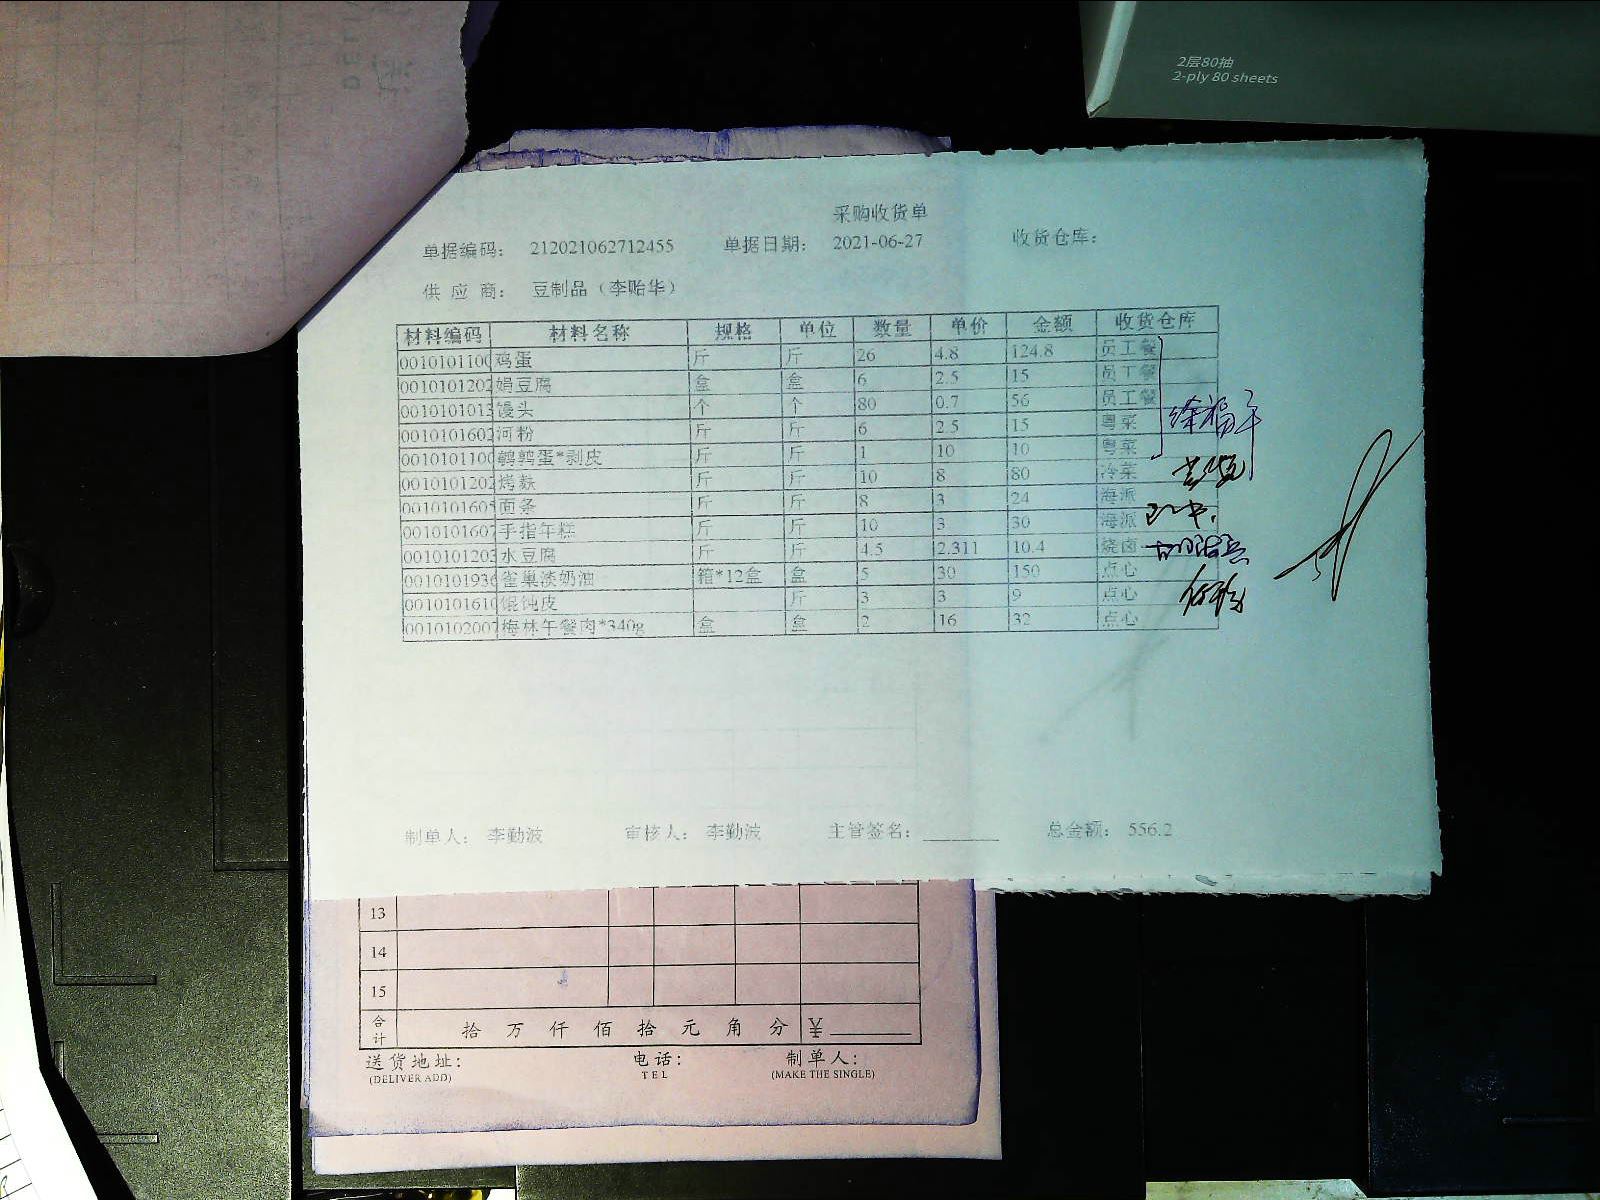 2层80抽
2-ply 80 sheets
采购收货单
单据编码: 212021062712455 单据日期: 2021-06-27 收货仓库:
供 应 商: 豆制品（李贻华）
材料编码 材料名称 规格 单位 数量 单价 金额 收货仓库
0010101100 鸡蛋 斤 斤 26 4.8 124.8 员工餐
0010101202 娟豆腐 盒 盒 6 2.5 15 员工餐
0010101013 馒头 个 个 80 0.7 56 员工餐
0010101602 河粉 斤 斤 6 2.5 15 粤菜
0010101100 鹌鹑蛋*剥皮 斤 斤 1 10 10 粤菜
0010101202 烤麸 斤 斤 10 8 80 冷菜
0010101605 面条 斤 斤 8 3 24 海派
0010101607 手指年糕 斤 斤 10 3 30 海派
0010101203 水豆腐 斤 斤 4.5 2.311 10.4 烧卤
0010101936 雀巢淡奶油 箱*12盒 盒 5 30 150 点心
0010101610 馄饨皮 斤 3 3 9 点心
0010102007 梅林午餐肉*340g 盒 盒 2 16 32 点心
制单人: 李勤波 审核人: 李勤波 主管签名: 总金额: 556.2
13
14
15
合计 拾 万 仟 佰 拾 元 角 分 ¥
送货地址: 电话: 制单人:
(DELIVER ADD) TEL (MAKE THE SINGLE)